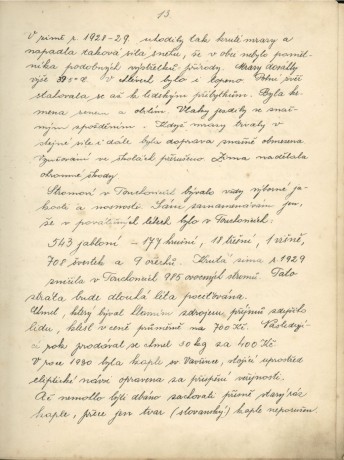 13
V zimě r. 1928-29. uhodily tak kruté mrazy a
napadla taková síla sněhu, že v obci nebylo pamět-
níka podobných výstřelků přírody. Mrazy dosáhly
výše 35°C. v Lounech bylo i
stahovala se až k lidským příbytkům. Byla
senem a obilím. Vlaky jezdily se znač-
ným zpožděním. Když mrazy trvaly v
stejné síle i dále byla doprava značně omezena
Vyučování ve školách přerušeno Zima nadělala
ohromné škody
Stromoví v Touchovicích bývalo vždy výborné ja-
kosti a nosnosti. Zaznamenávám jen,
že v poválečných letech bylo v Touchovicích:
543 jabloní – 177 hrušní, 18 třešní, 1 višně,
708 švestek a 9 ořechů. Krutá zima r. 1929
zničila v Touchovicích 985 ovocných stromů. Tato
ztráta bude dlouhá léta pociťována.
Chmel, který býval hlavním zdrojem příjmů zdejšího
lidu, klesl v ceně průměrně na 700 Kč. Následují-
cí rok prodával se chmel 50 kg za 400 Kč
V roce 1930 byla kaple sv. Vavřince, stojící uprostřed
eliptické návse opravena za přispění veřejnosti.
Ač nemohlo býti dbáno zachovati přesně starý ráz
kaple, přece jen tvar (slovanský) kaple neporušen.